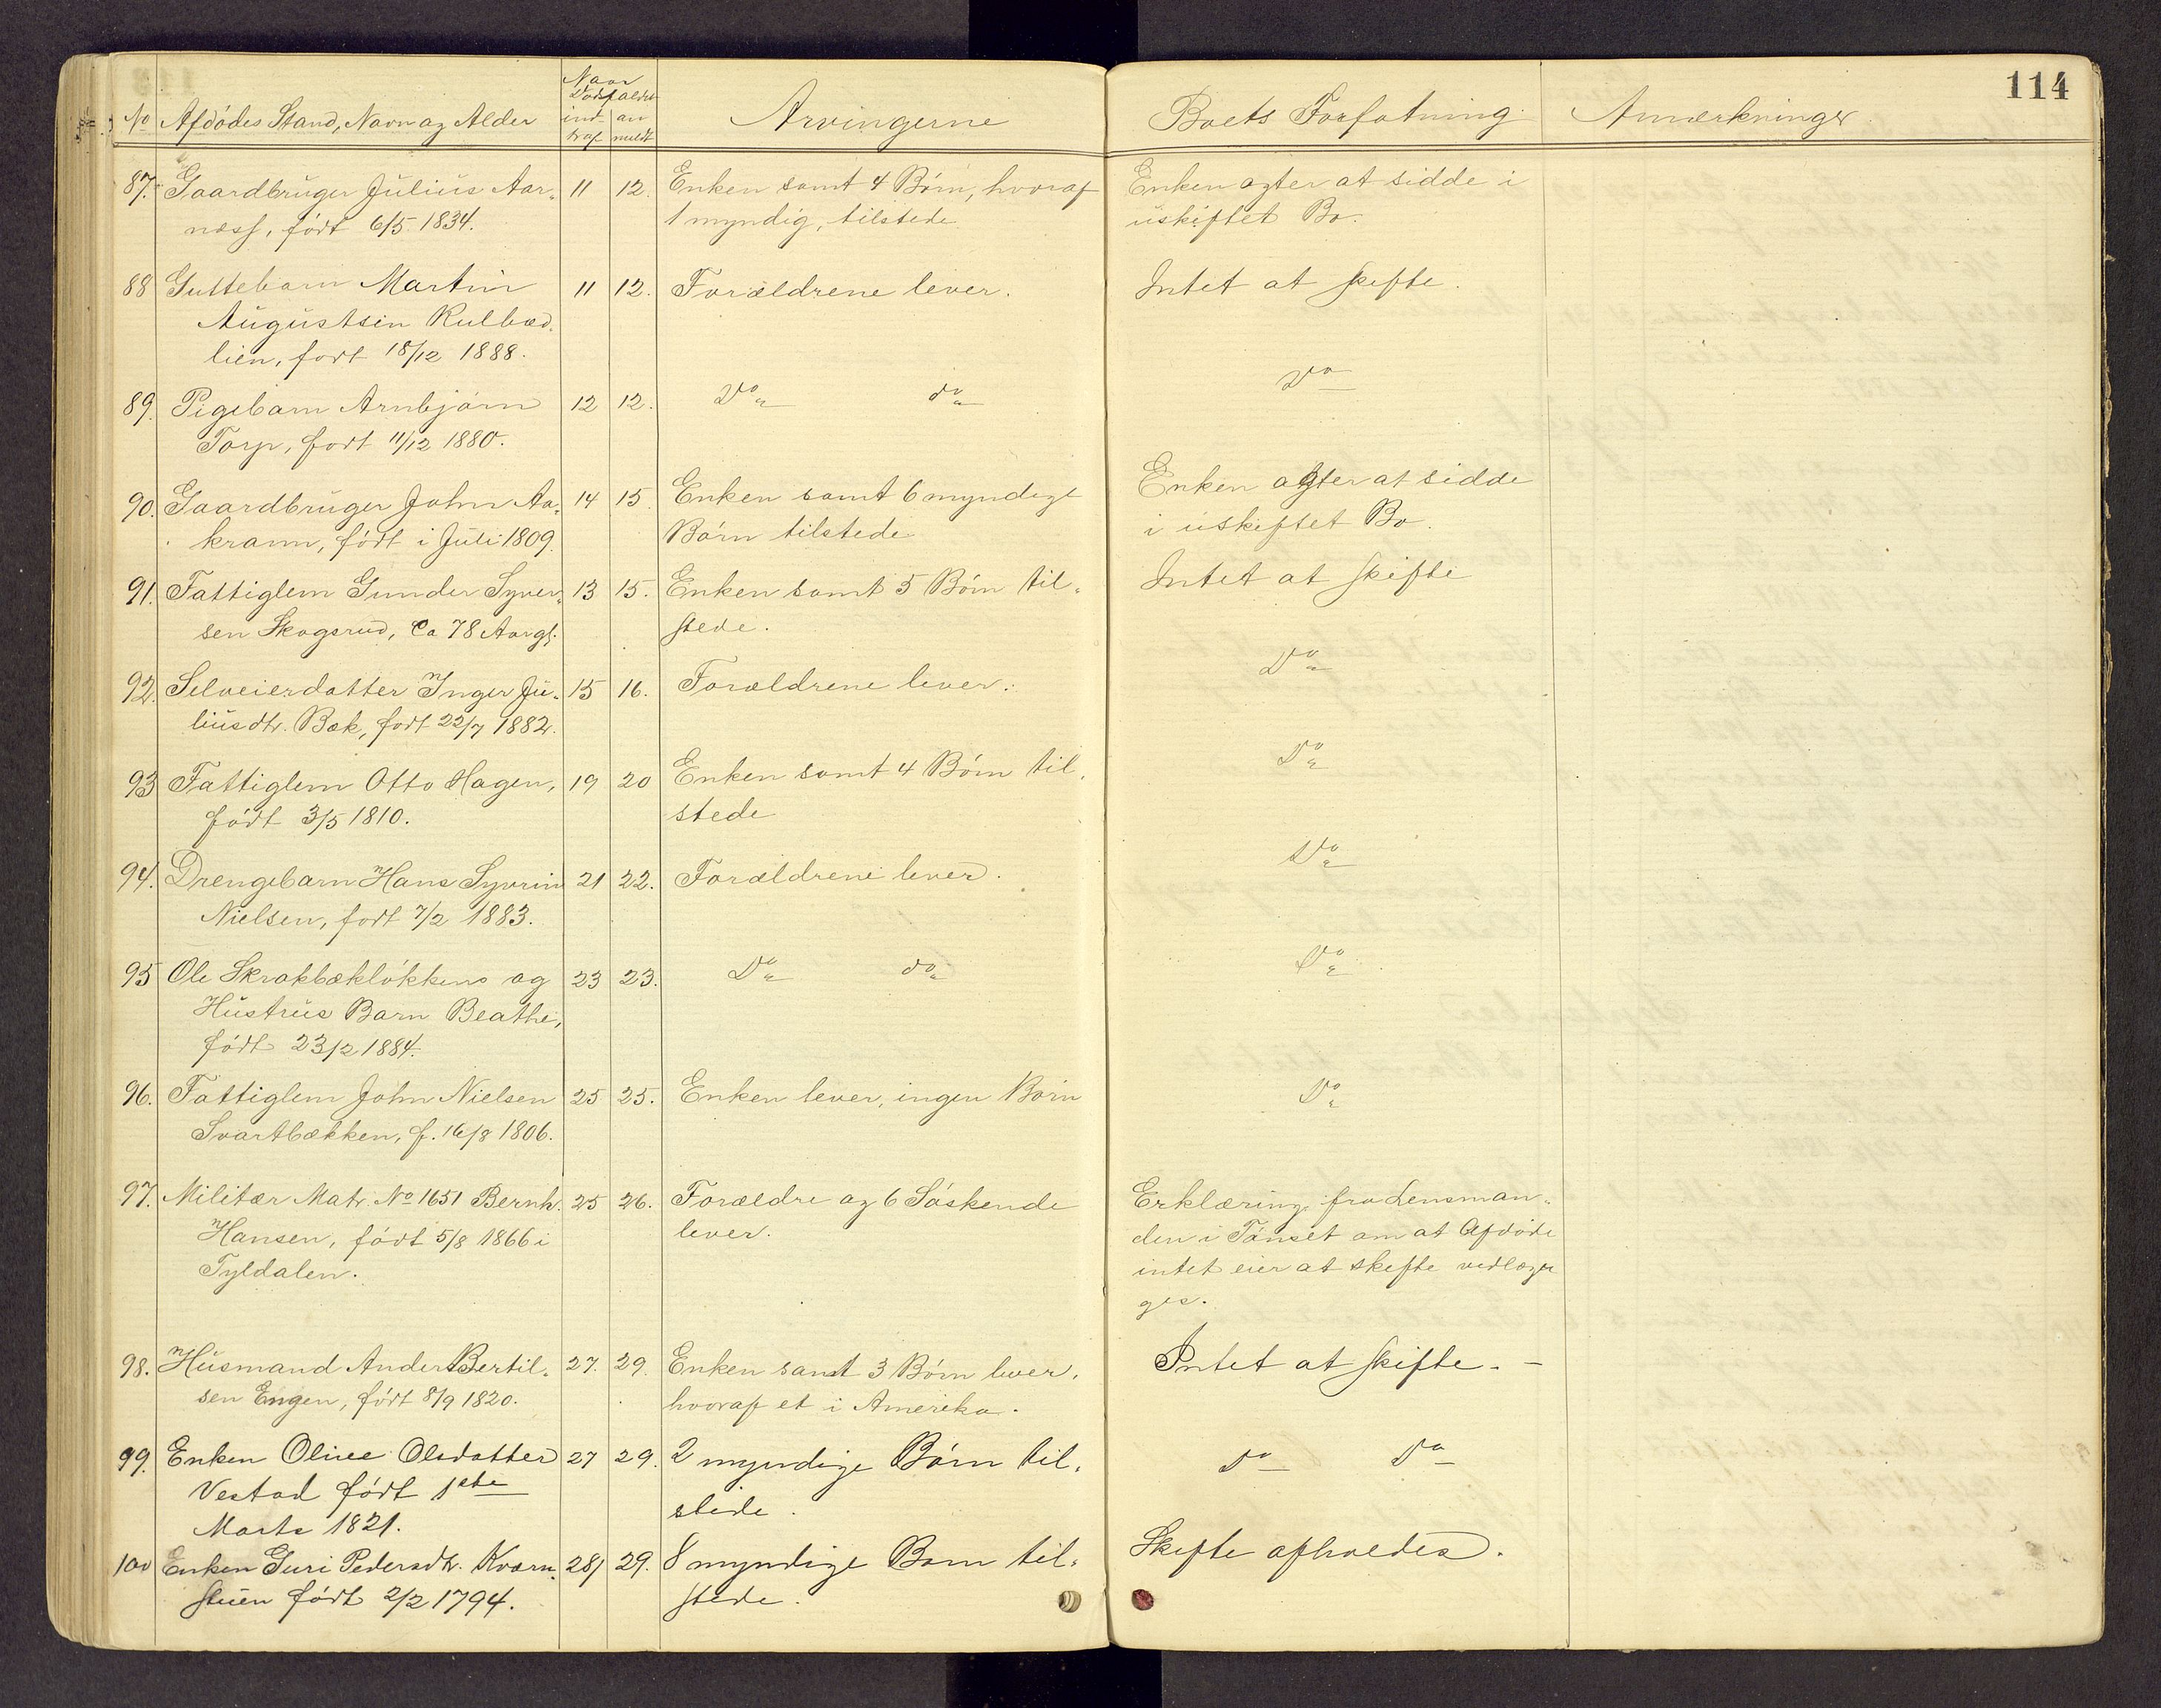 114
No Afdødes Stand, Navn og Alder Naar Dødsfaldet ind traf an meldt Arvingerne Boets Forfatning Anmærkninger
87. Gaardbruger Julius Aar- 11 12. Enken samt 4 Børn, hvoraf Enken agter at sidde i
næss, født 6/5 1834. 1 myndig, tilstede uskiftet Bo.
88 Guttebarn Martin 11 12. Forældrene lever. Intet at skifte.
Augustsen Kulbæd
lien, født 18/12 1888.
89. Pigebarn Arnbjørn 12 12. Do do Do
Torp, født 11/12 1880.
90. Gaardbruger John Aa- 14 15. Enken samt 6 myndige Enken agter at sidde
krann, født i Juli 1809. Børn tilstede i uskiftet Bo.
91. Fattiglem Gunder Syver- 13 15. Enken samt 5 Børn til- Intet at skifte
sen Skogsrud, ca 78 Aar gl. stede.
92. Selveierdatter Inger Ju- 15 16. Forældrene lever. Do
liusdtr. Bæk, født 22/7 1882.
93 Fattiglem Otto Hagen, 19 20 Enken samt 4 Børn til- Do
født 3/5 1810. stede
94. Drengebarn Hans Syverin 21 22. Forældrene lever. Do
Nielsen, født 7/2 1883.
95 Ole Skrakbækløkkens og 23 23. Do do Do
Hustrus Barn Beathe,
født 23/2 1884.
96. Fattiglem John Nielsen 25 25. Enken lever, ingen Børn Do
Svartbækken, f. 16/8 1806.
97. Militær Matr. No 1651 Bernh. 25 26. Forældre og 6 Søskende Erklæring fra Lensman-
Hansen, født 5/8 1866 i lever. den i Tønset om at Afdøde
Tyldalen. intet eier at skifte vedlæg
ges.
98. Husmand Anders Bertil- 27. 29. Enken samt 3 Børn lever, Intet at skifte. —
sen Engen, født 8/9 1820. hvoraf et i Amerika.
99. Enken Olive Olsdatter 27 29. 2 myndige Børn til- Do Do
Vestad født 1ste stede.
Marts 1821.
100 Enken Guri Pedersdtr. Kværn- 28/ 29. 8 myndige Børn til- Skifte afholdes.
stuen født 2/2 1794. stede.